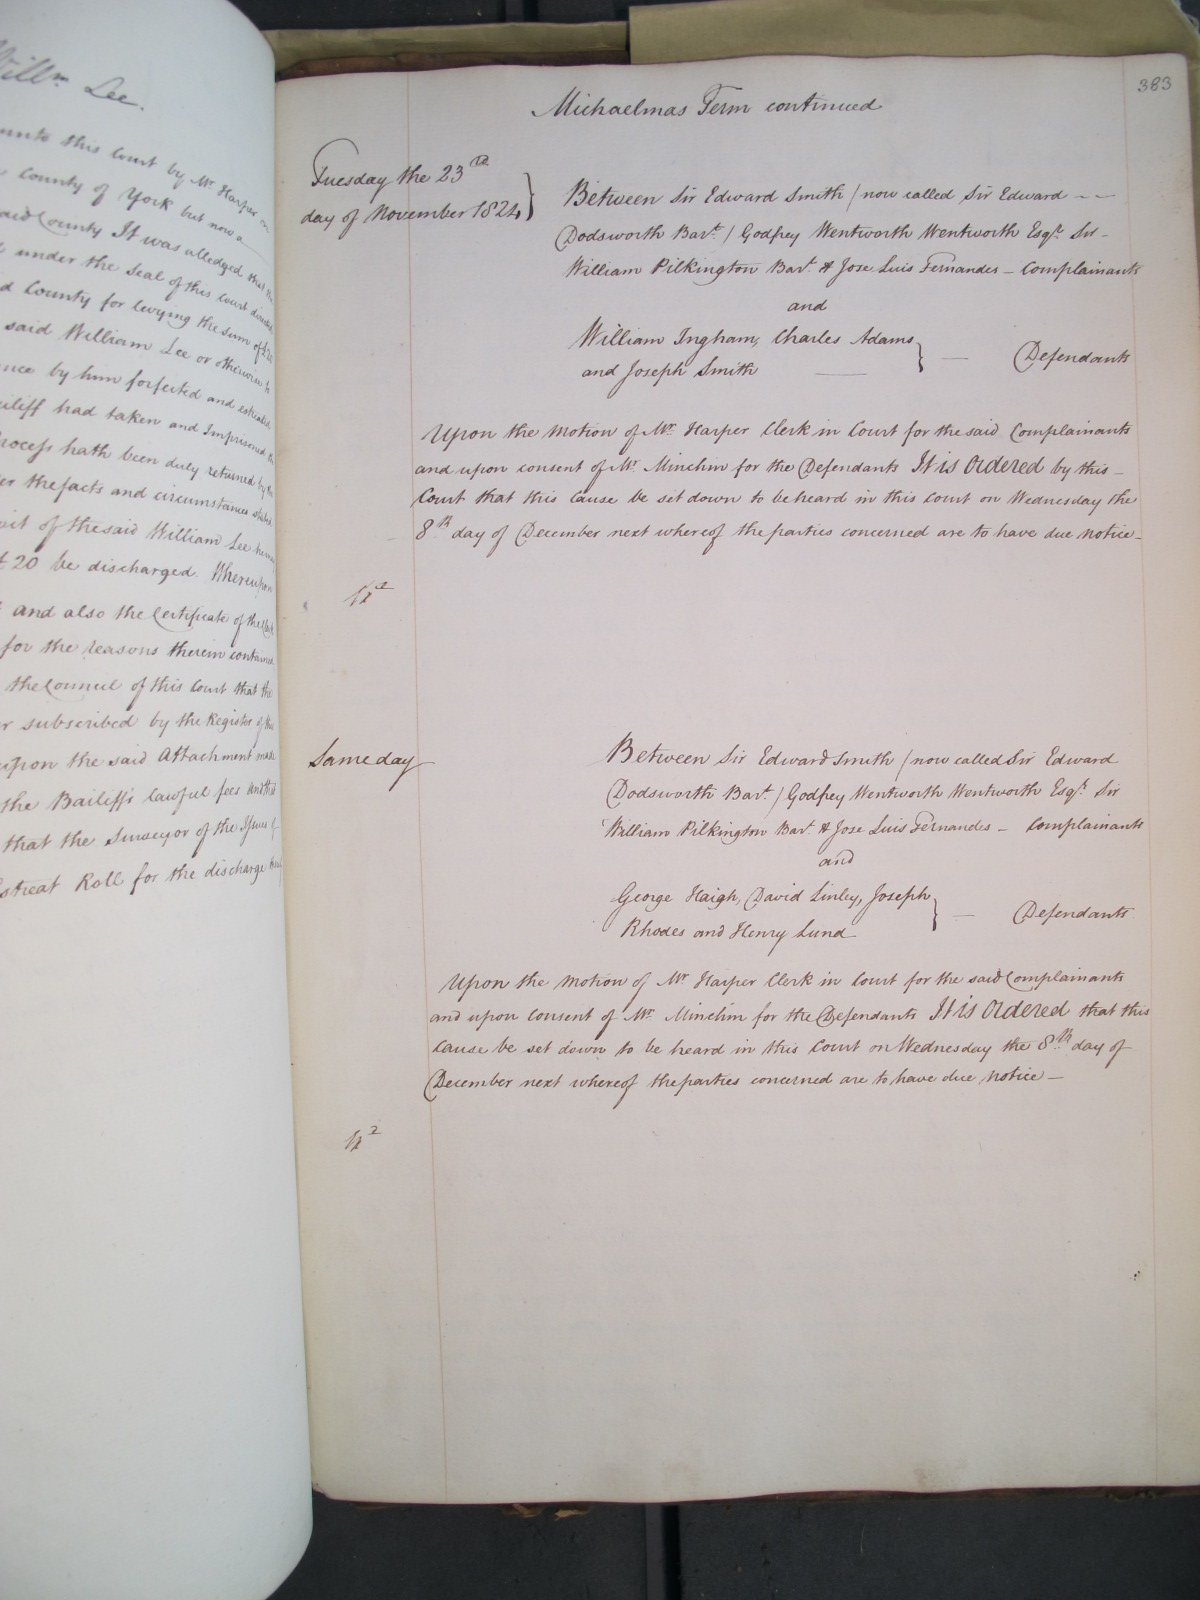 Willm Lee.
unto this Court by Mr Harper on
County of York but now a
said County It was alledged that the
under the Seal of this Court directed
d County for levying the sum of £20
said William Lee or otherwise to
nce by him forfeited and estreated
ailiff had taken and Imprisoned the
Process hath been duly returned by the
er the facts and circumstances stated
vit of the said William Lee
£20 be discharged. Whereupon
and also the Certificate of the Clerk
for the reasons therein contained
the Council of this Court that the
r subscribed by the Register of this
upon the said Attachment made
the Bailiff's lawful fees And that
that the Surveyor of the Issues &
Estreat Roll for the discharge
383
Michaelmas Term continued
Tuesday the 23rd
day of November 1824
Between Sir Edward Smith / now called Sir Edward --
Dodsworth Bart / Godfrey Wentworth Wentworth Esqr Sir -
William Pilkington Bart & Jose Luis Fernandes - Complainants
and
William Ingham, Charles Adams
and Joseph Smith — Defendants
Upon the Motion of Mr Harper Clerk in Court for the said Complainants
and upon consent of Mr Minchin for the Defendants It is Ordered by this -
Court that this Cause be set down to be heard in this Court on Wednesday the
8th day of December next whereof the parties concerned are to have due Notice -
Same day
Between Sir Edward Smith / now called Sir Edward
Dodsworth Bart / Godfrey Wentworth Wentworth Esqr Sir
William Pilkington Bart & Jose Luis Fernandes - Complainants
and
George Haigh, David Linley, Joseph
Rhodes and Henry Lund — Defendants
Upon the Motion of Mr Harper Clerk in Court for the said Complainants
and upon Consent of Mr Minchin for the Defendants It is Ordered that this
Cause be set down to be heard in this Court on Wednesday the 8th day of
December next whereof the parties concerned are to have due Notice -